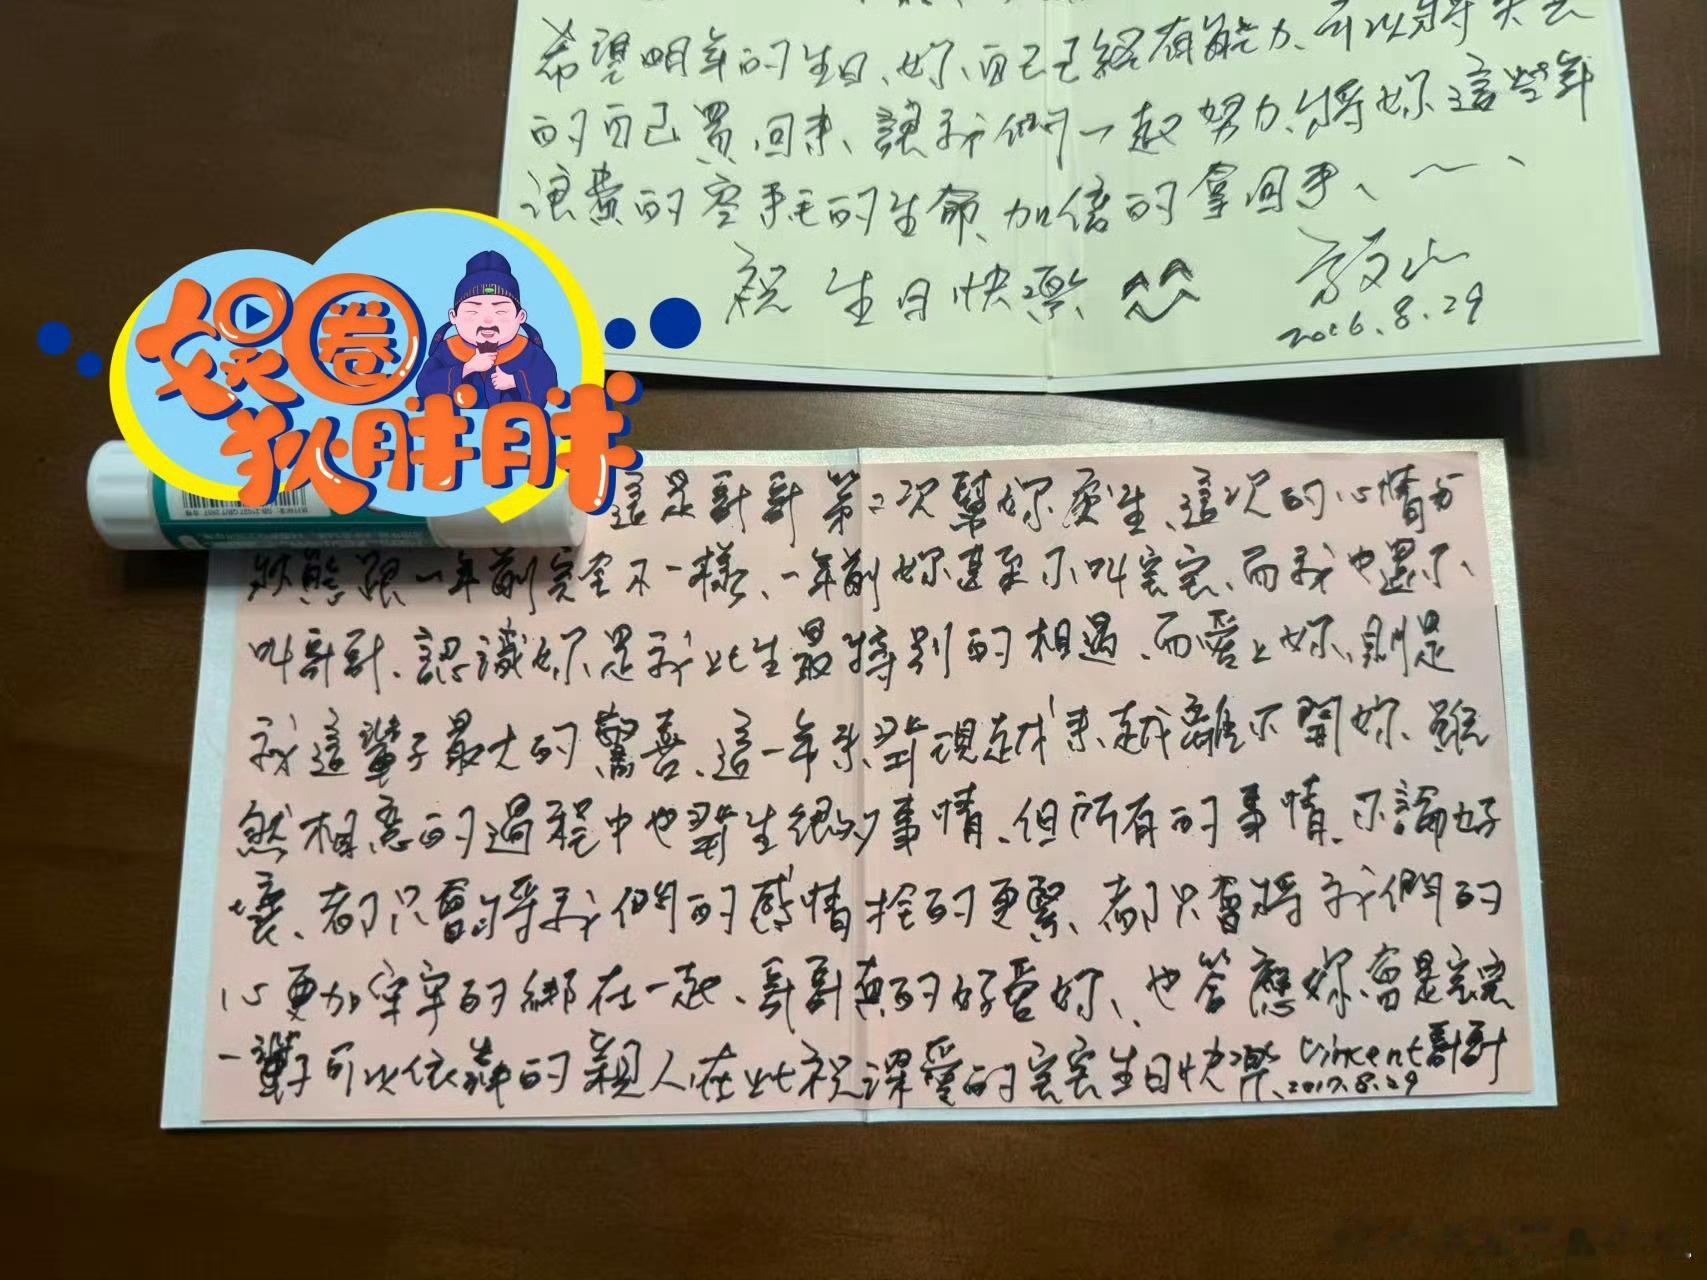 希望明年的生日、妳、自己已經有能力、可以將失去
的自己買回來、讓我們一起努力、將妳這些年
浪費的空手毛的生命、加倍的拿回來、~、
祝 生日快樂 ^^
2016.8.29
娱圈
狄胖胖
這是哥哥第二次幫妳慶生、這次的心情与
狀態跟一年前完全不一樣、一年前妳甚至不叫宝宝、而我也還不、
叫哥哥、認識妳是我此生最特別的相遇、而愛上妳、則是
我這輩子最大的驚喜、這一年來發現越來越離不開妳、雖
然相戀的過程中也發生很多事情、但所有的事情、不論好
壞、都只會將我們的感情拴的更緊、都只會將我們的
心更加牢牢的綁在一起、哥哥真的好愛妳、也答應妳、會是宝宝
一輩子可以依靠的親人、在此祝深愛的宝宝生日快樂、Vincent哥哥
2017.8.29